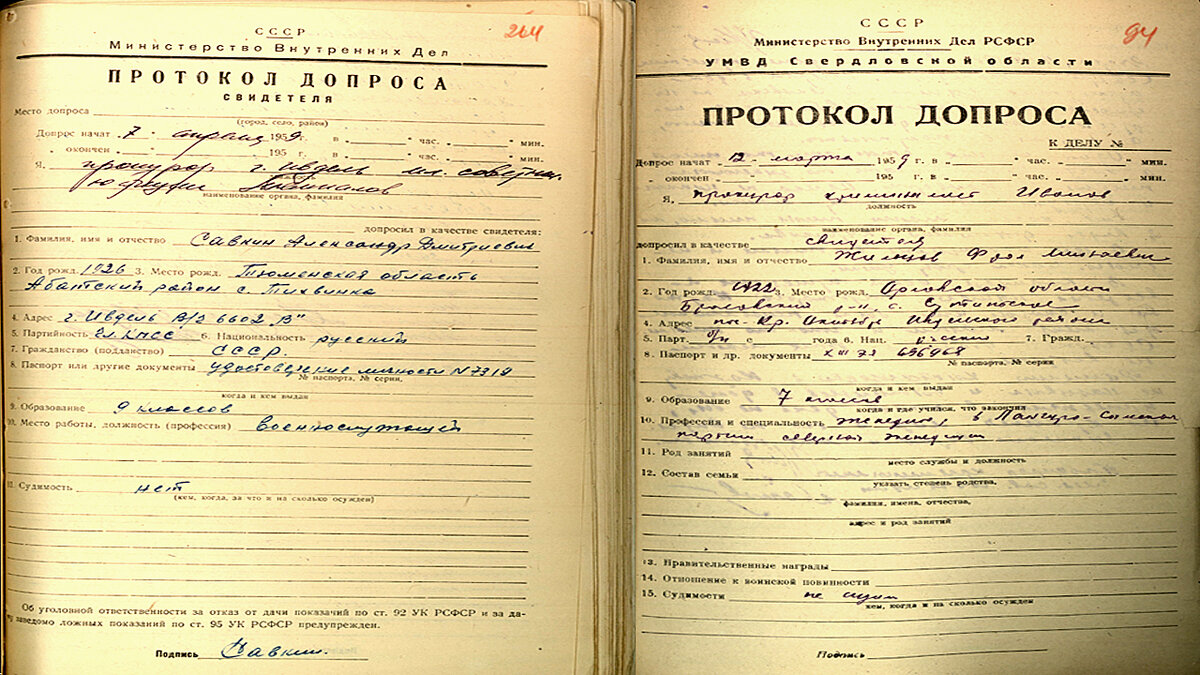 264
СССР
Министерство Внутренних Дел
ПРОТОКОЛ ДОПРОСА
СВИДЕТЕЛЯ
Место допроса
(город, село, район)
Допрос начат 7 апреля 1959 г. в час. мин.
„ окончен „ 195 г. в час. мин.
Я, прокурор г. Ивдель мл. советник
юстиции Темпалов
наименование органа, фамилия
допросил в качестве свидетеля:
1. Фамилия, имя и отчество Савкин Александр Дмитриевич
2. Год рожд. 1926 3. Место рожд. Тюменская область
Абатский район с. Тихвинка
4. Адрес г. Ивдель В/ч 6602 „В"
5. Партийность чл. КПСС 6. Национальность русский
7. Гражданство (подданство) СССР.
8. Паспорт или другие документы удостоверение личности №7319
№ паспорта, № серии,
когда и кем выдан
9. Образование 9 классов
10. Место работы, должность (профессия) военнослужащий
11. Судимость нет
(кем, когда, за что и на сколько осужден)
Об уголовной ответственности за отказ от дачи показаний по ст. 92 УК РСФСР и за да-
чу заведомо ложных показаний по ст. 95 УК РСФСР предупрежден.
Подпись Савкин.
94
СССР
Министерство Внутренних Дел РСФСР
УМВД Свердловской области
ПРОТОКОЛ ДОПРОСА
К ДЕЛУ №
Допрос начат 12 марта 1959 г. в „ час. мин.
„ окончен „ 195 г. в „ час. мин.
Я, прокурор криминалист Иванов
должность
наименование органа, фамилия
допросил в качестве свидетеля
1. Фамилия, имя и отчество
2. Год рожд. 1922 3. Место рожд. Орловской области
р-н, с.
4. Адрес пос. Кр. Октябрь Ивдельского района
5. Парт. б/п с года 6. Нац. русский 7. Гражд.
8. Паспорт и др. документы
№ паспорта, № серии
когда и кем выдан
9. Образование 7 классов
когда и где учился, что закончил
10. Профессия и специальность в
партии северной экспедиции
11. Род занятий
место службы и должность
12. Состав семьи
указать степень родства,
фамилия, имена, отчества,
адрес и род занятий
13. Правительственные награды
14. Отношение к воинской повинности
15. Судимости не судим
кем, когда и на сколько осужден
Подпись